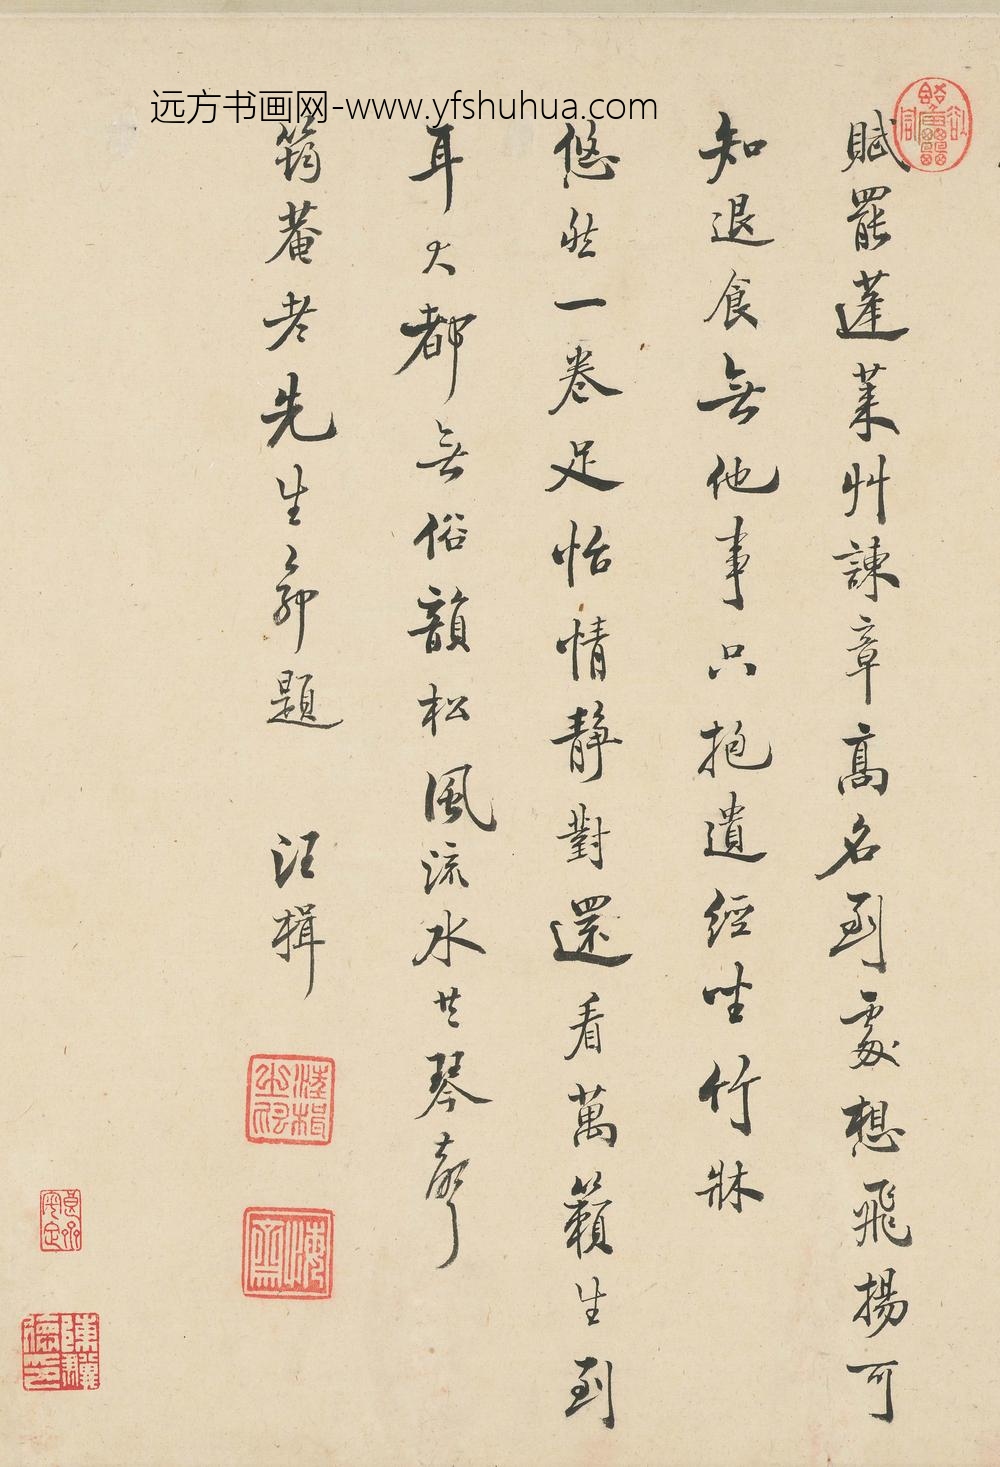 远方书画网-www.yfshuhua.com
賦罷蓬萊艸諫章高名到處想飛揚可
知退食無他事只抱遺經坐竹牀
悠然一卷足怡情靜對還看萬籟生到
耳大都無俗韻松風流水共琴聲
筠菴老先生命題 汪楫